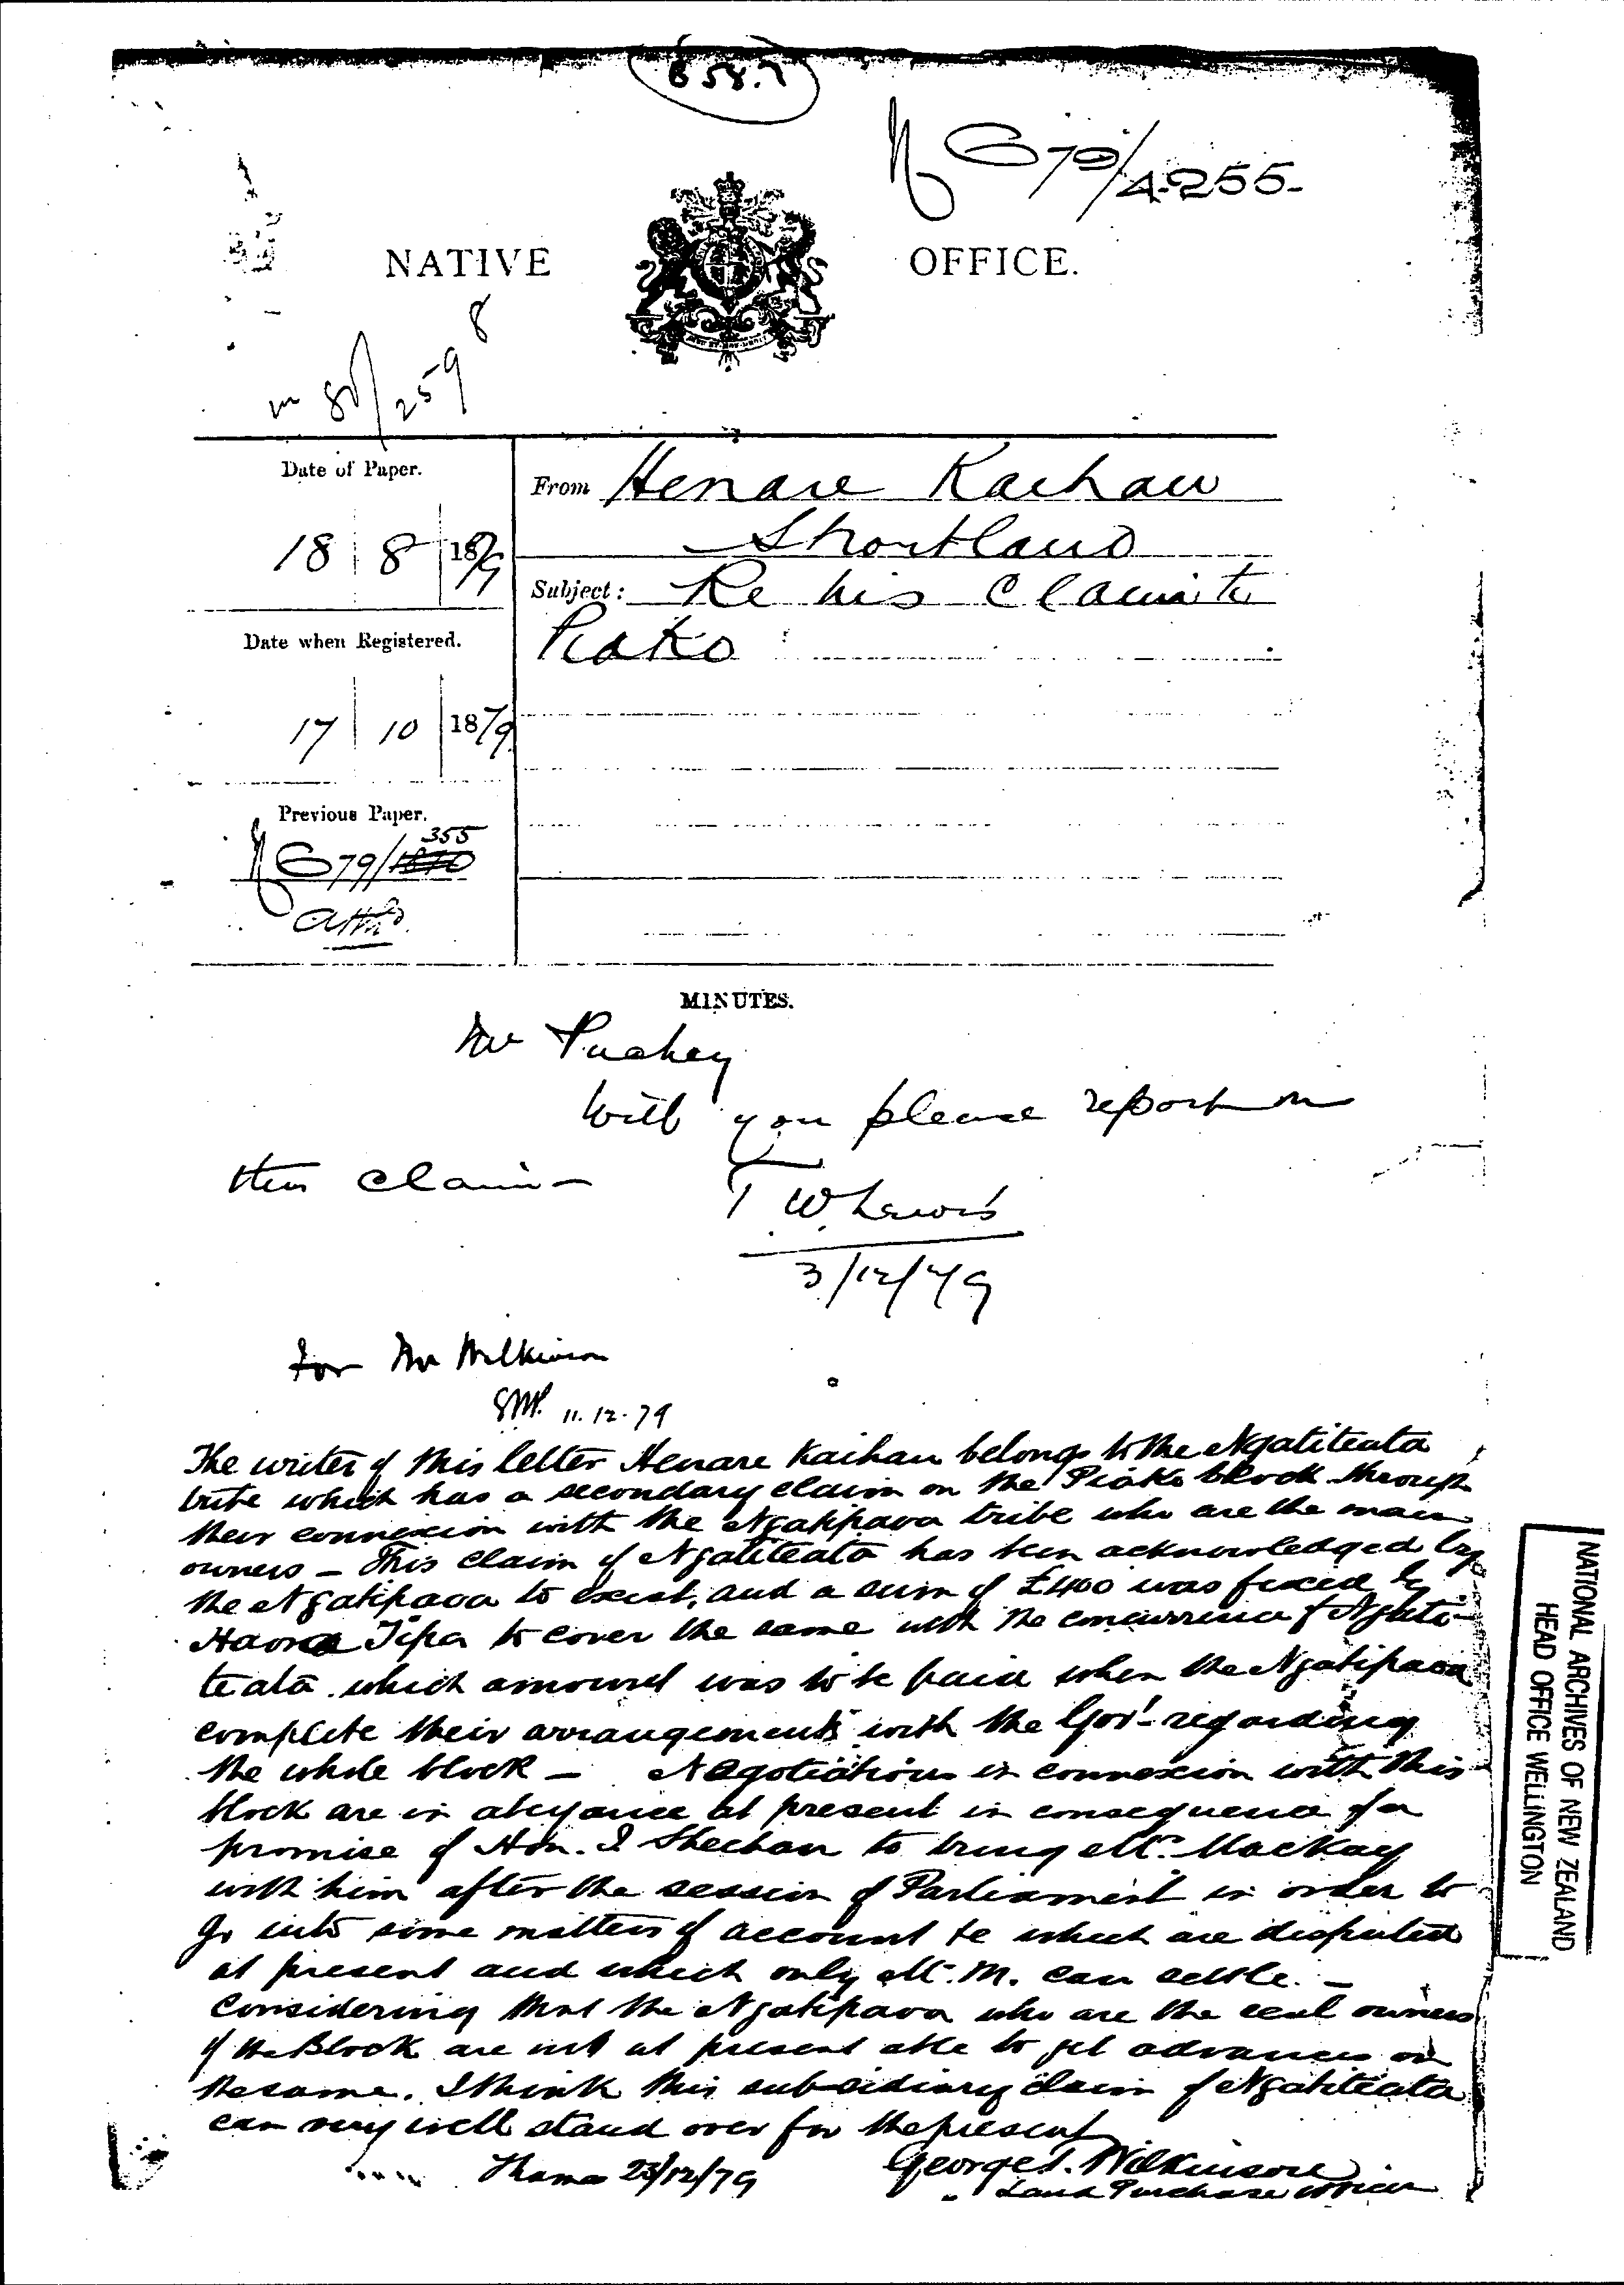 658.7
NG 79/4255
NATIVE OFFICE.
80/2598
Date of Paper.
From Henare Kaihau
Shortland
18 8 1879
Subject: Re his Claim to
Piako
Date when Registered.
17 10 1879
Previous Paper.
355
NG 79/1870
attd.
MINUTES.
Mr Puckey
Will you please report on
this claim
T W Lewis
3/12/79
For Mr Wilkinson
11.12.79
The writer of this letter Henare Kaihau belongs to the Ngatiteata
tribe which has a secondary claim on the Piako block through
their connexion with the Ngatipaoa tribe who are the main
owners – This claim of Ngatiteata has been acknowledged by
the Ngatipaoa to exist, and a sum of £400 was fixed by
Haora Tipa to cover the same with the concurrence of Ngati-
teata which amount was to be paid when the Ngatipaoa
complete their arrangements with the Govt. regarding
the whole block – Negotiations in connexion with this
block are in abeyance at present in consequence of a
promise of Hon. J Sheehan to bring Mr. Mackay
with him after the session of Parliament in order to
go into some matters of account &c which are disputed
at present and which only Mr. M. can settle. –
Considering that the Ngatipaoa who are the real owners
of the Block are not at present able to get advances on
the same. I think this subsidiary claim of Ngatiteata
can very well stand over for the present
Thames 23/12/79
George T. Wilkinson
Land Purchase Officer
NATIONAL ARCHIVES OF NEW ZEALAND
HEAD OFFICE WELLINGTON